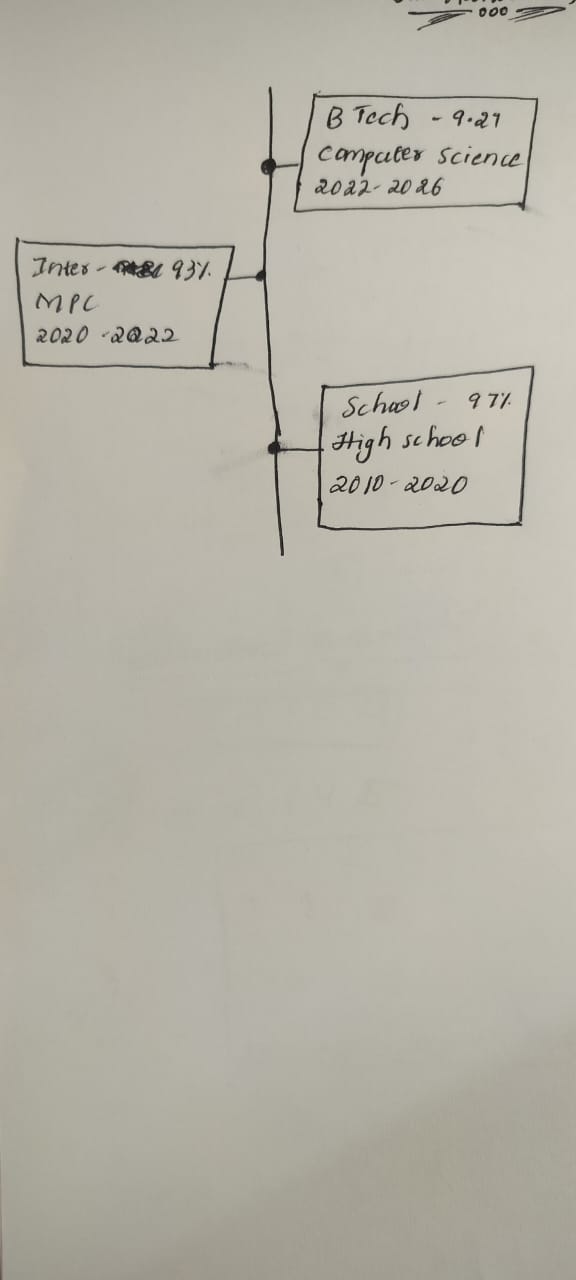 B Tech - 9.27
Computer Science
2022-2026
Inter - 93%
MPC
2020-2022
School - 97%
High school
2010-2020